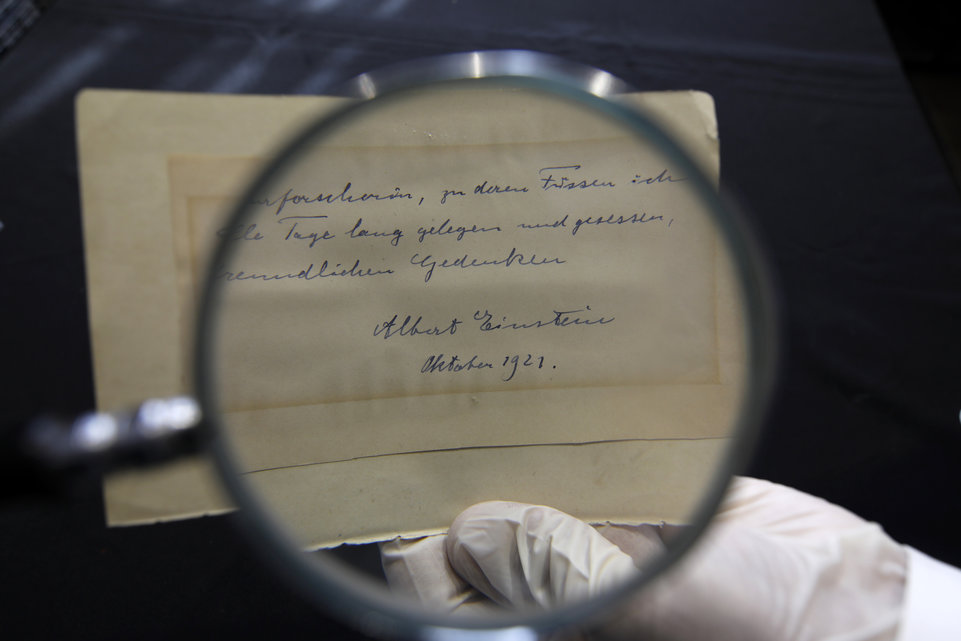 zu deren Füssen ich
Tage lang gelegen und gesessen,
freundlichen Gedenken
Albert Einstein
Oktober 1921.